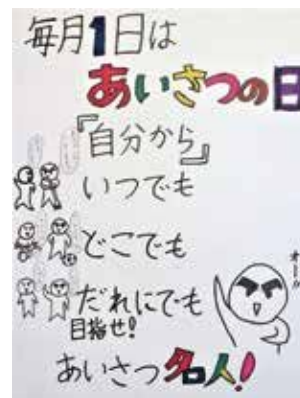 毎月1日は
あいさつの日
『自分から』
いつでも
どこでも
だれにでも
目指せ!
あいさつ名人!